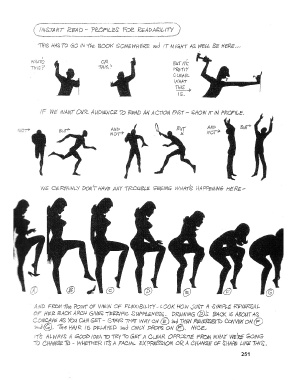 INSTANT READ - PROFILES FOR READABILITY
THIS HAS TO GO IN THE BOOK SOMEWHERE and IT MIGHT AS WELL BE HERE...
WHAT'S THIS?
OR THIS?
BUT IT'S PRETTY CLEAR WHAT THIS IS.
IF WE WANT OUR AUDIENCE TO READ AN ACTION FAST - SHOW IT IN PROFILE.
NOT
BUT
AND NOT
BUT
AND NOT
BUT
WE CERTAINLY DON'T HAVE ANY TROUBLE SEEING WHAT'S HAPPENING HERE -
A B C D E F G
AND FROM THE POINT OF VIEW OF FLEXIBILITY - LOOK HOW JUST A SIMPLE REVERSAL
OF HER BACK ARCH GIVES TERRIFIC SUPPLENESS. DRAWING D'S BACK IS ABOUT AS
CONCAVE AS YOU CAN GET - STAYS THAT WAY ON E and THEN REVERSES TO CONVEX ON F
and G. THE HAIR IS DELAYED and ONLY DROPS ON F. NICE.
IT'S ALWAYS A GOOD IDEA TO TRY TO GET A CLEAR OPPOSITE FROM WHAT WE'RE GOING
TO CHANGE TO - WHETHER IT'S A FACIAL EXPRESSION OR A CHANGE OF SHAPE LIKE THIS.
251